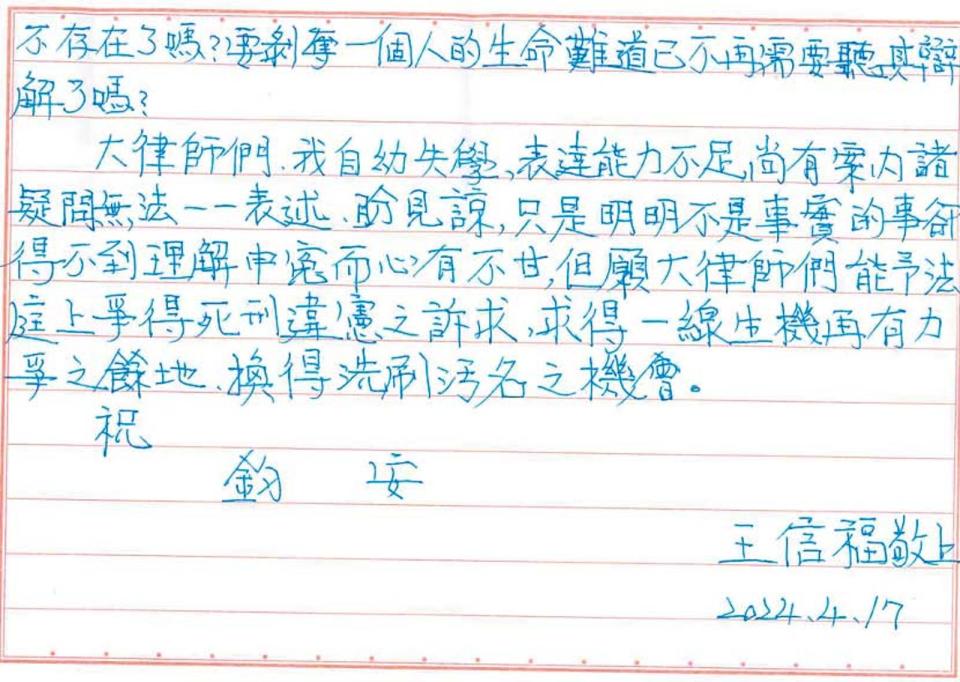 不存在了嗎?要剝奪一個人的生命難道已不再需要聽其辯
解了嗎?
大律師們、我自幼失學,表達能力不足,尚有案內諸
疑問無法一一表述、盼見諒,只是明明不是事實的事卻
得不到理解申冤而心有不甘,但願大律師們能予法
庭上爭得死刑違憲之訴求,求得一線生機再有力
爭之餘地、換得洗刷污名之機會。
祝
鈞 安
王信福敬上
2024.4.17